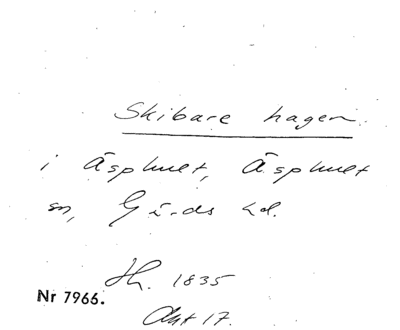 Skibare hagen
i Äsphult, Äsphult
sn, Gärds hd.
Hh. 1835
Nr 7966.
Akt 17.